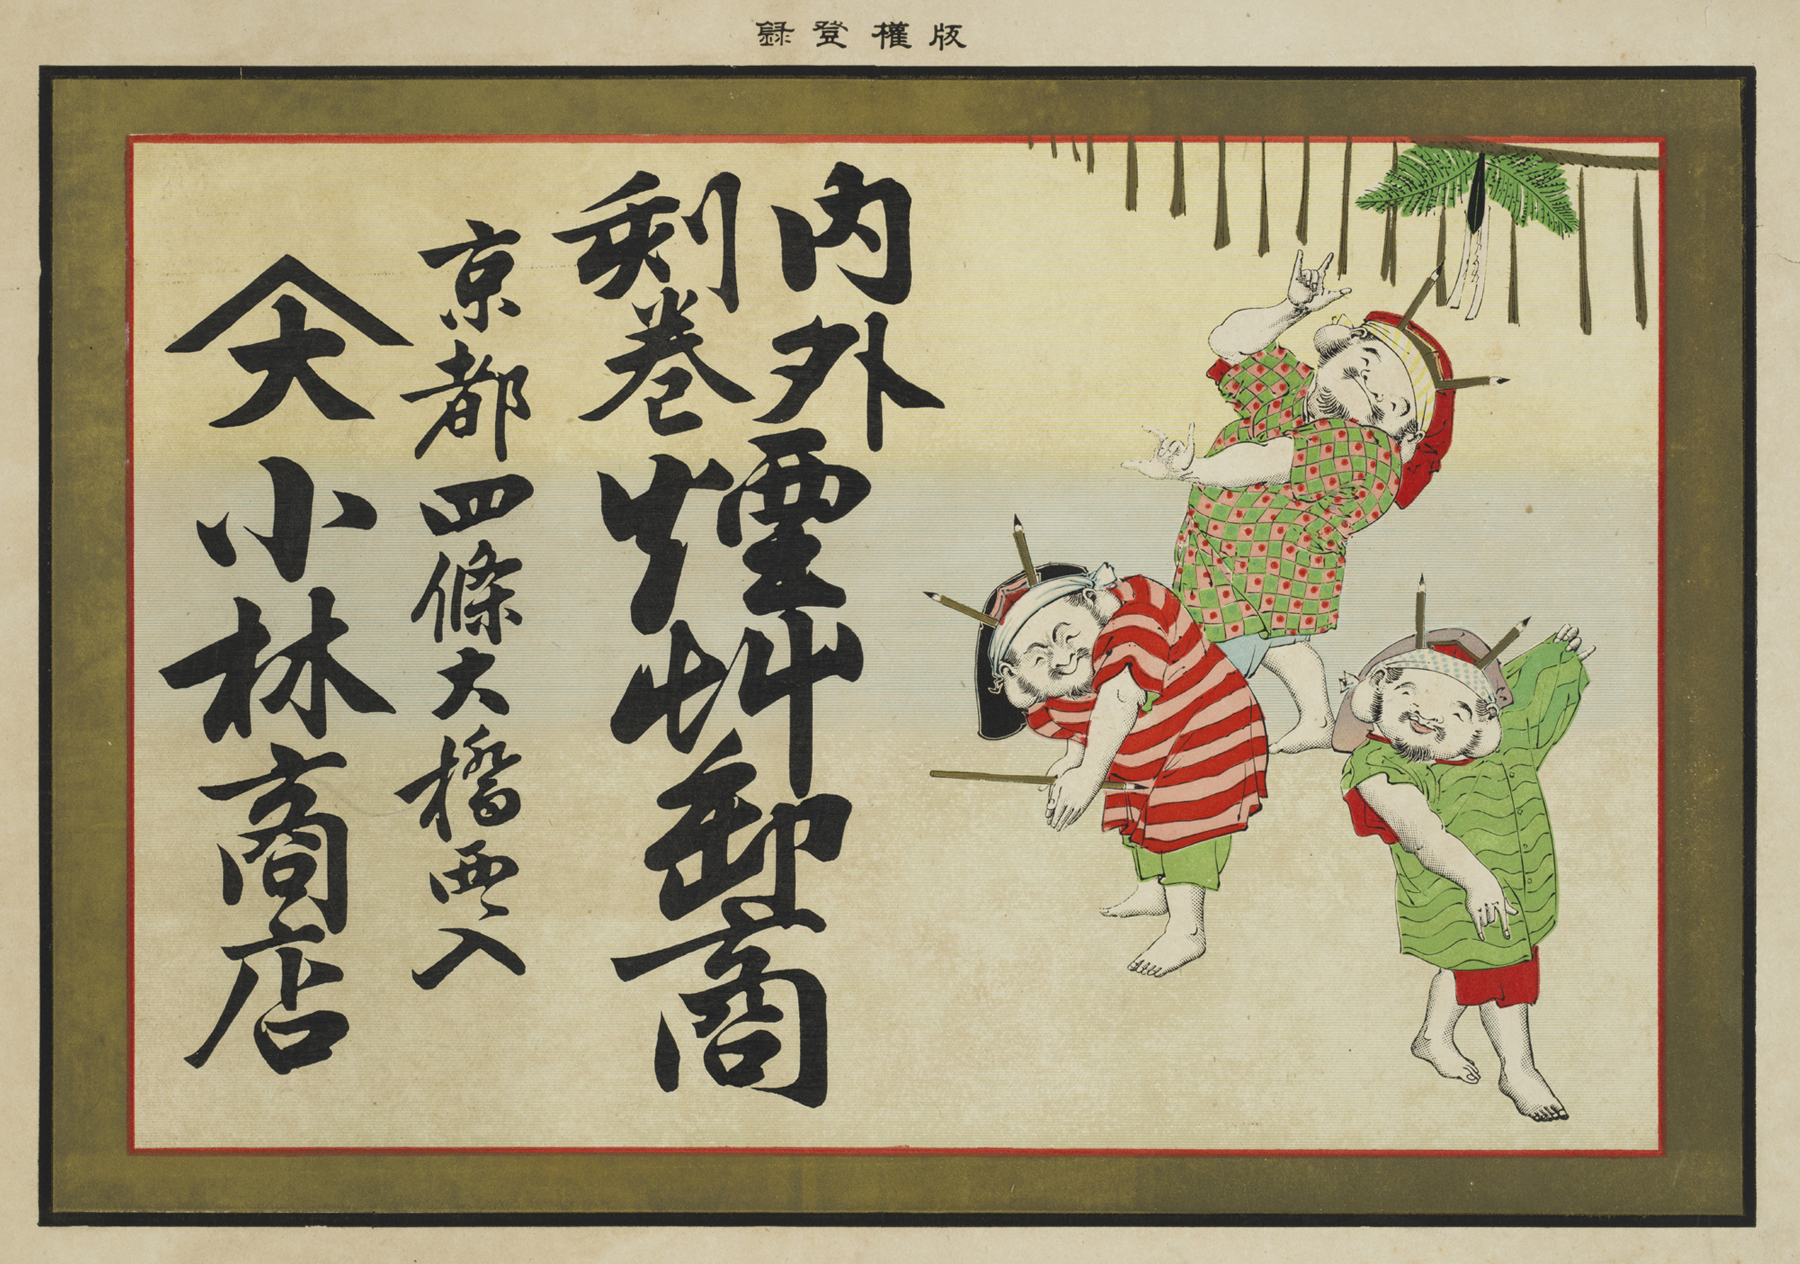 版權登録
内外
刻巻
煙艸卸商
京都四條大橋西入
大 小林商店